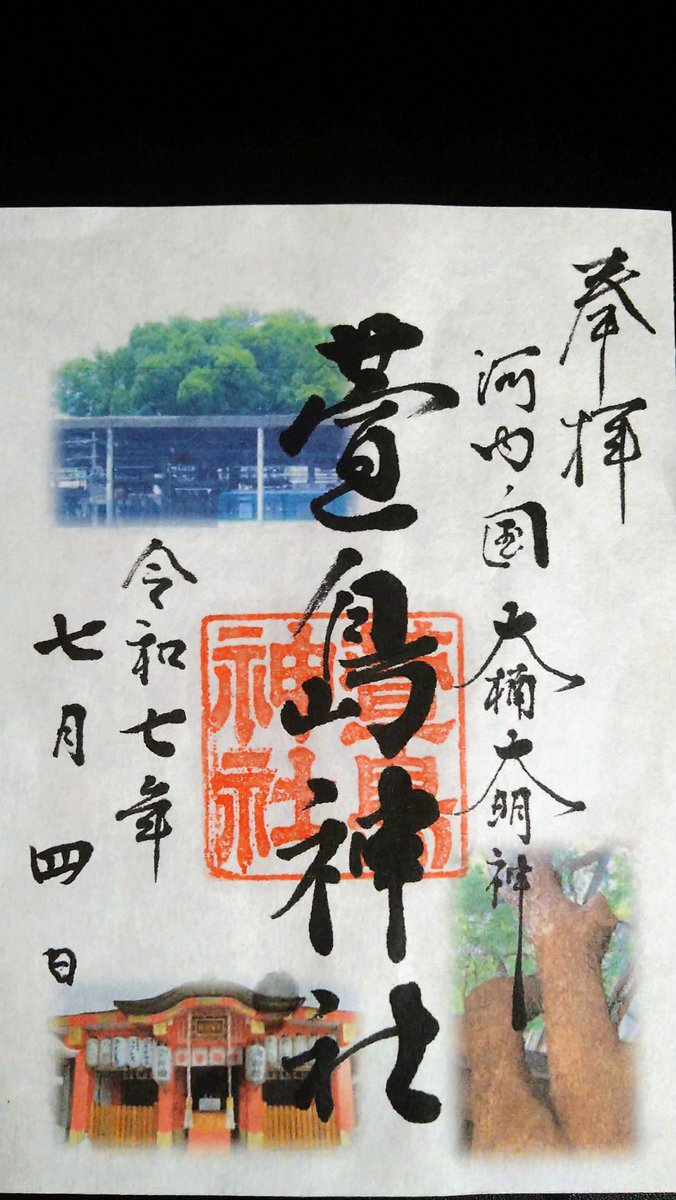 奉拝
河内国 大楠大明神
萱島神社
萱島
神社
令和七年
七月四日